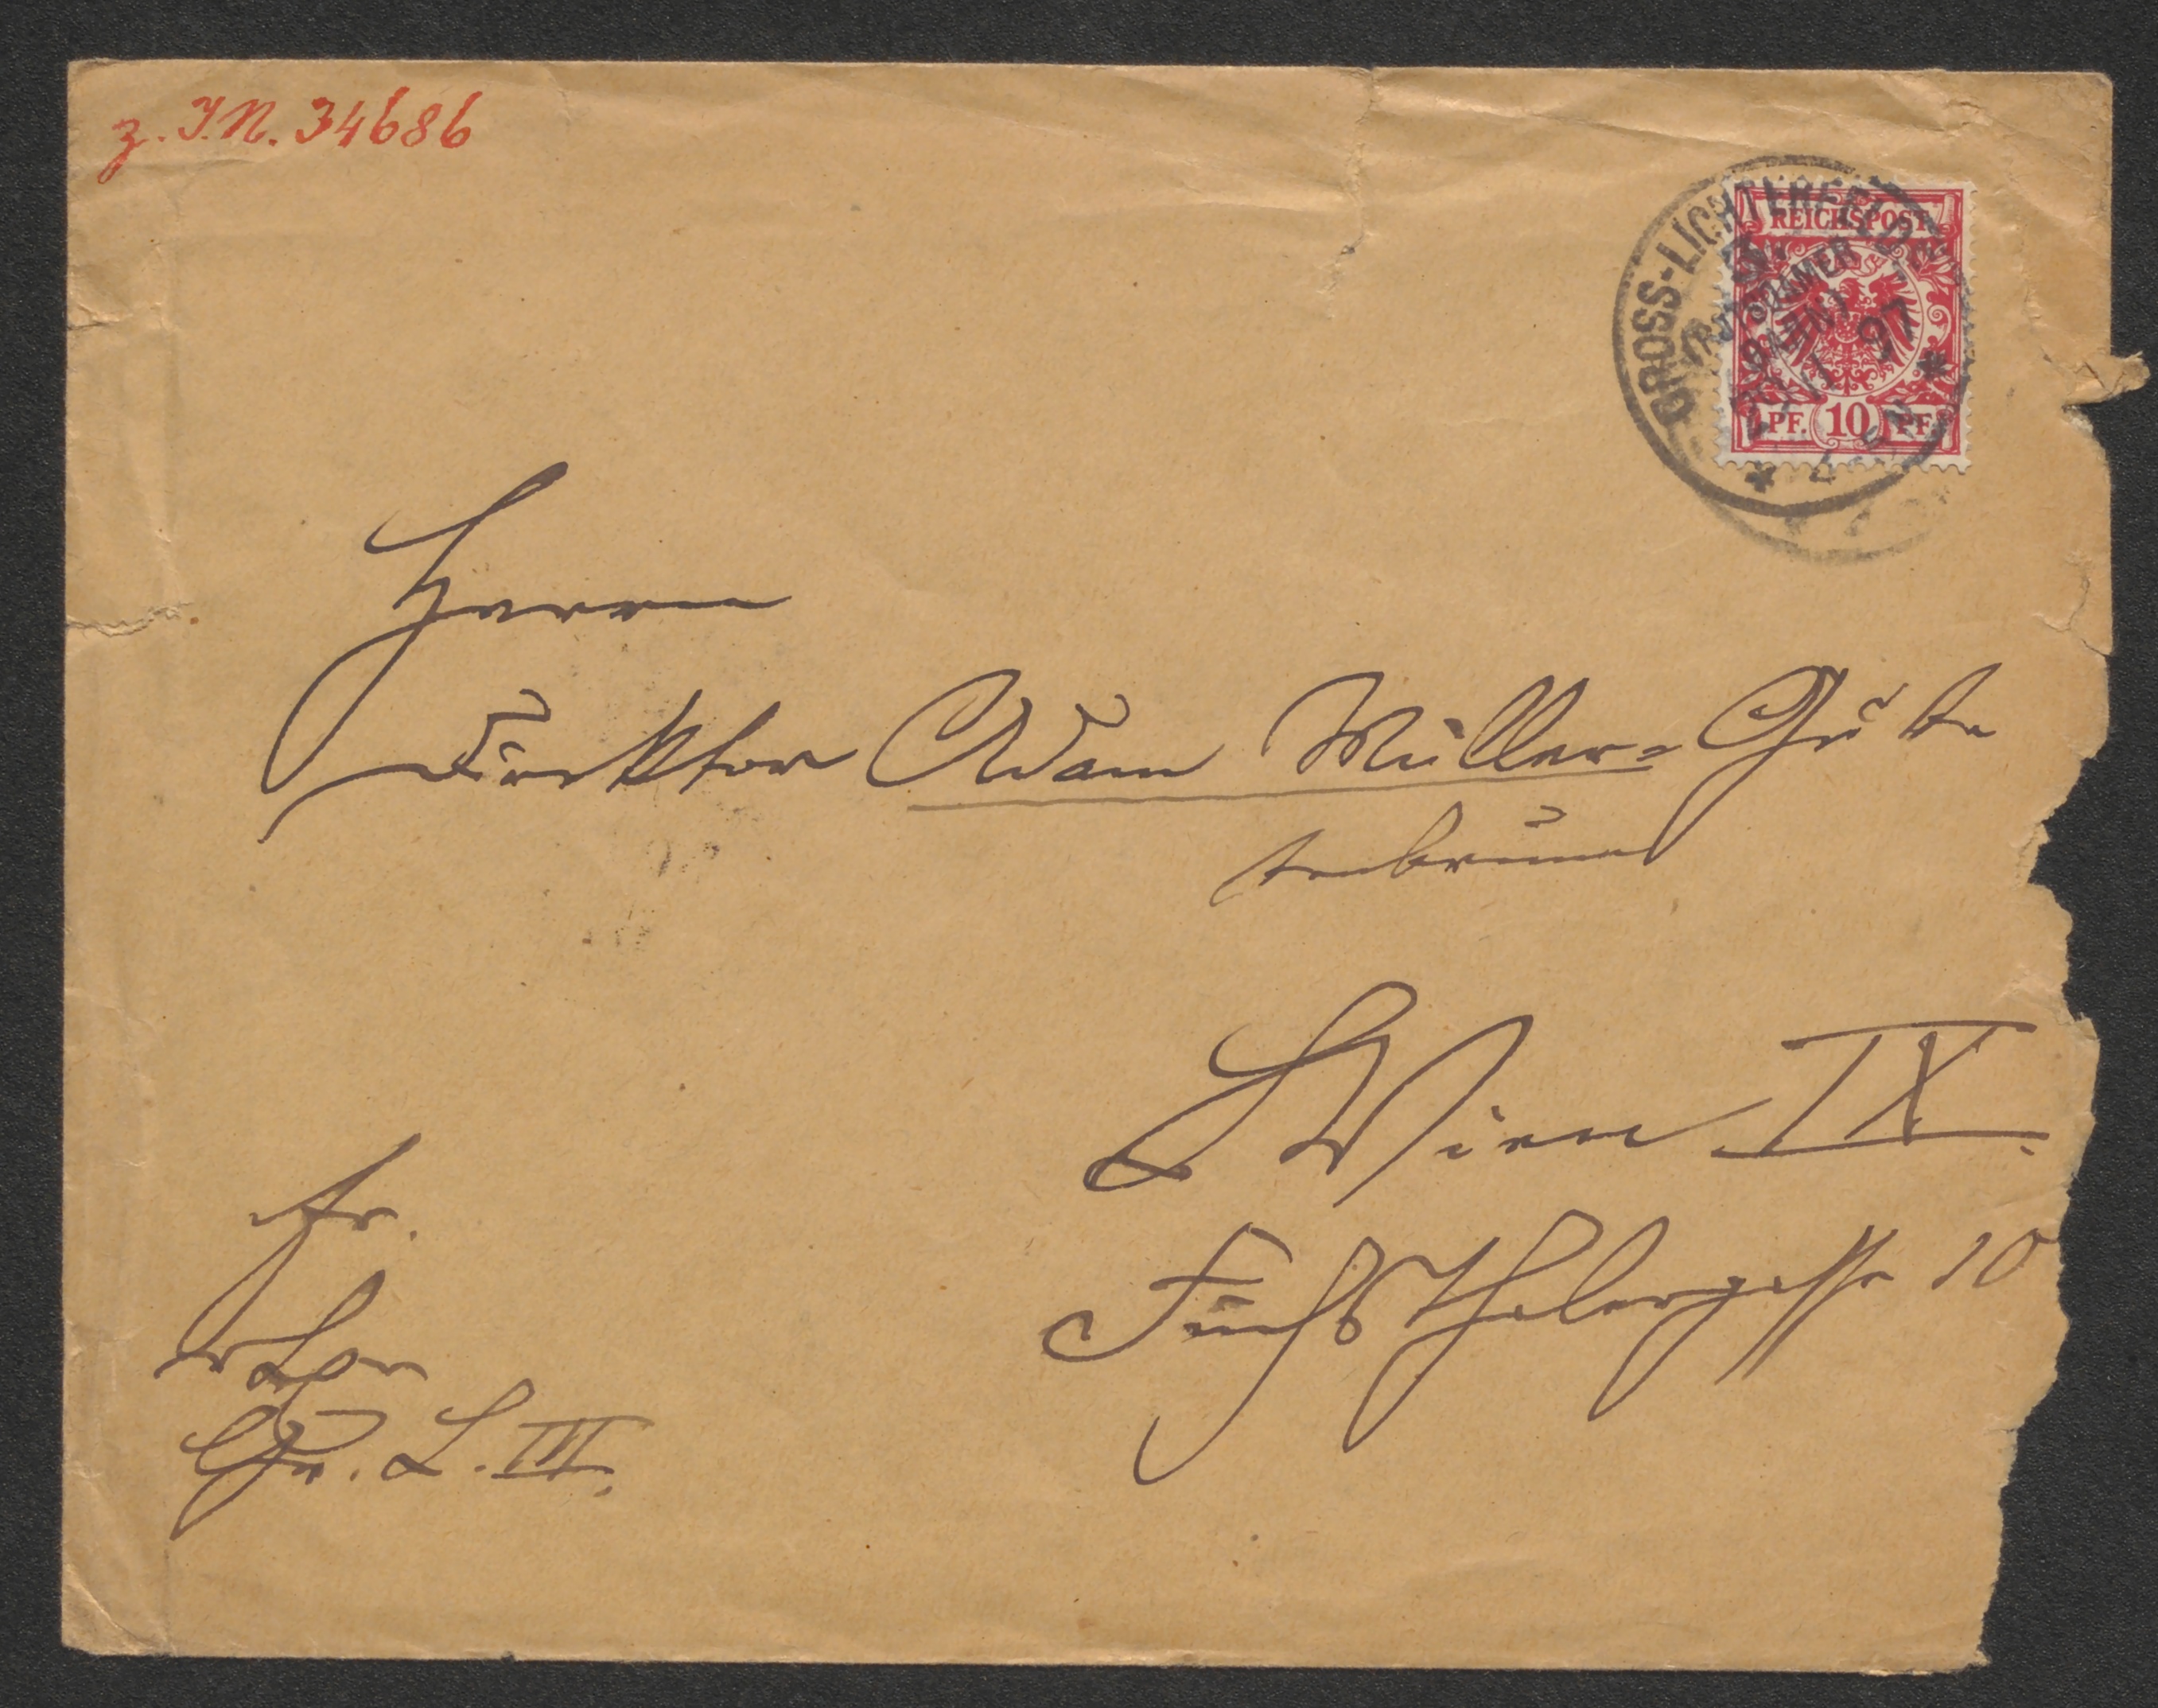 z. I.N. 34686
GROSS-LICHTERFELDE
97
REICHSPOST
PF. 10 PF.
Herrn
Direktor Adam Müller-Gute
tenbrunn
Wien IX.
Fuchsthalergasse 10
fr.
Gr. L. III.